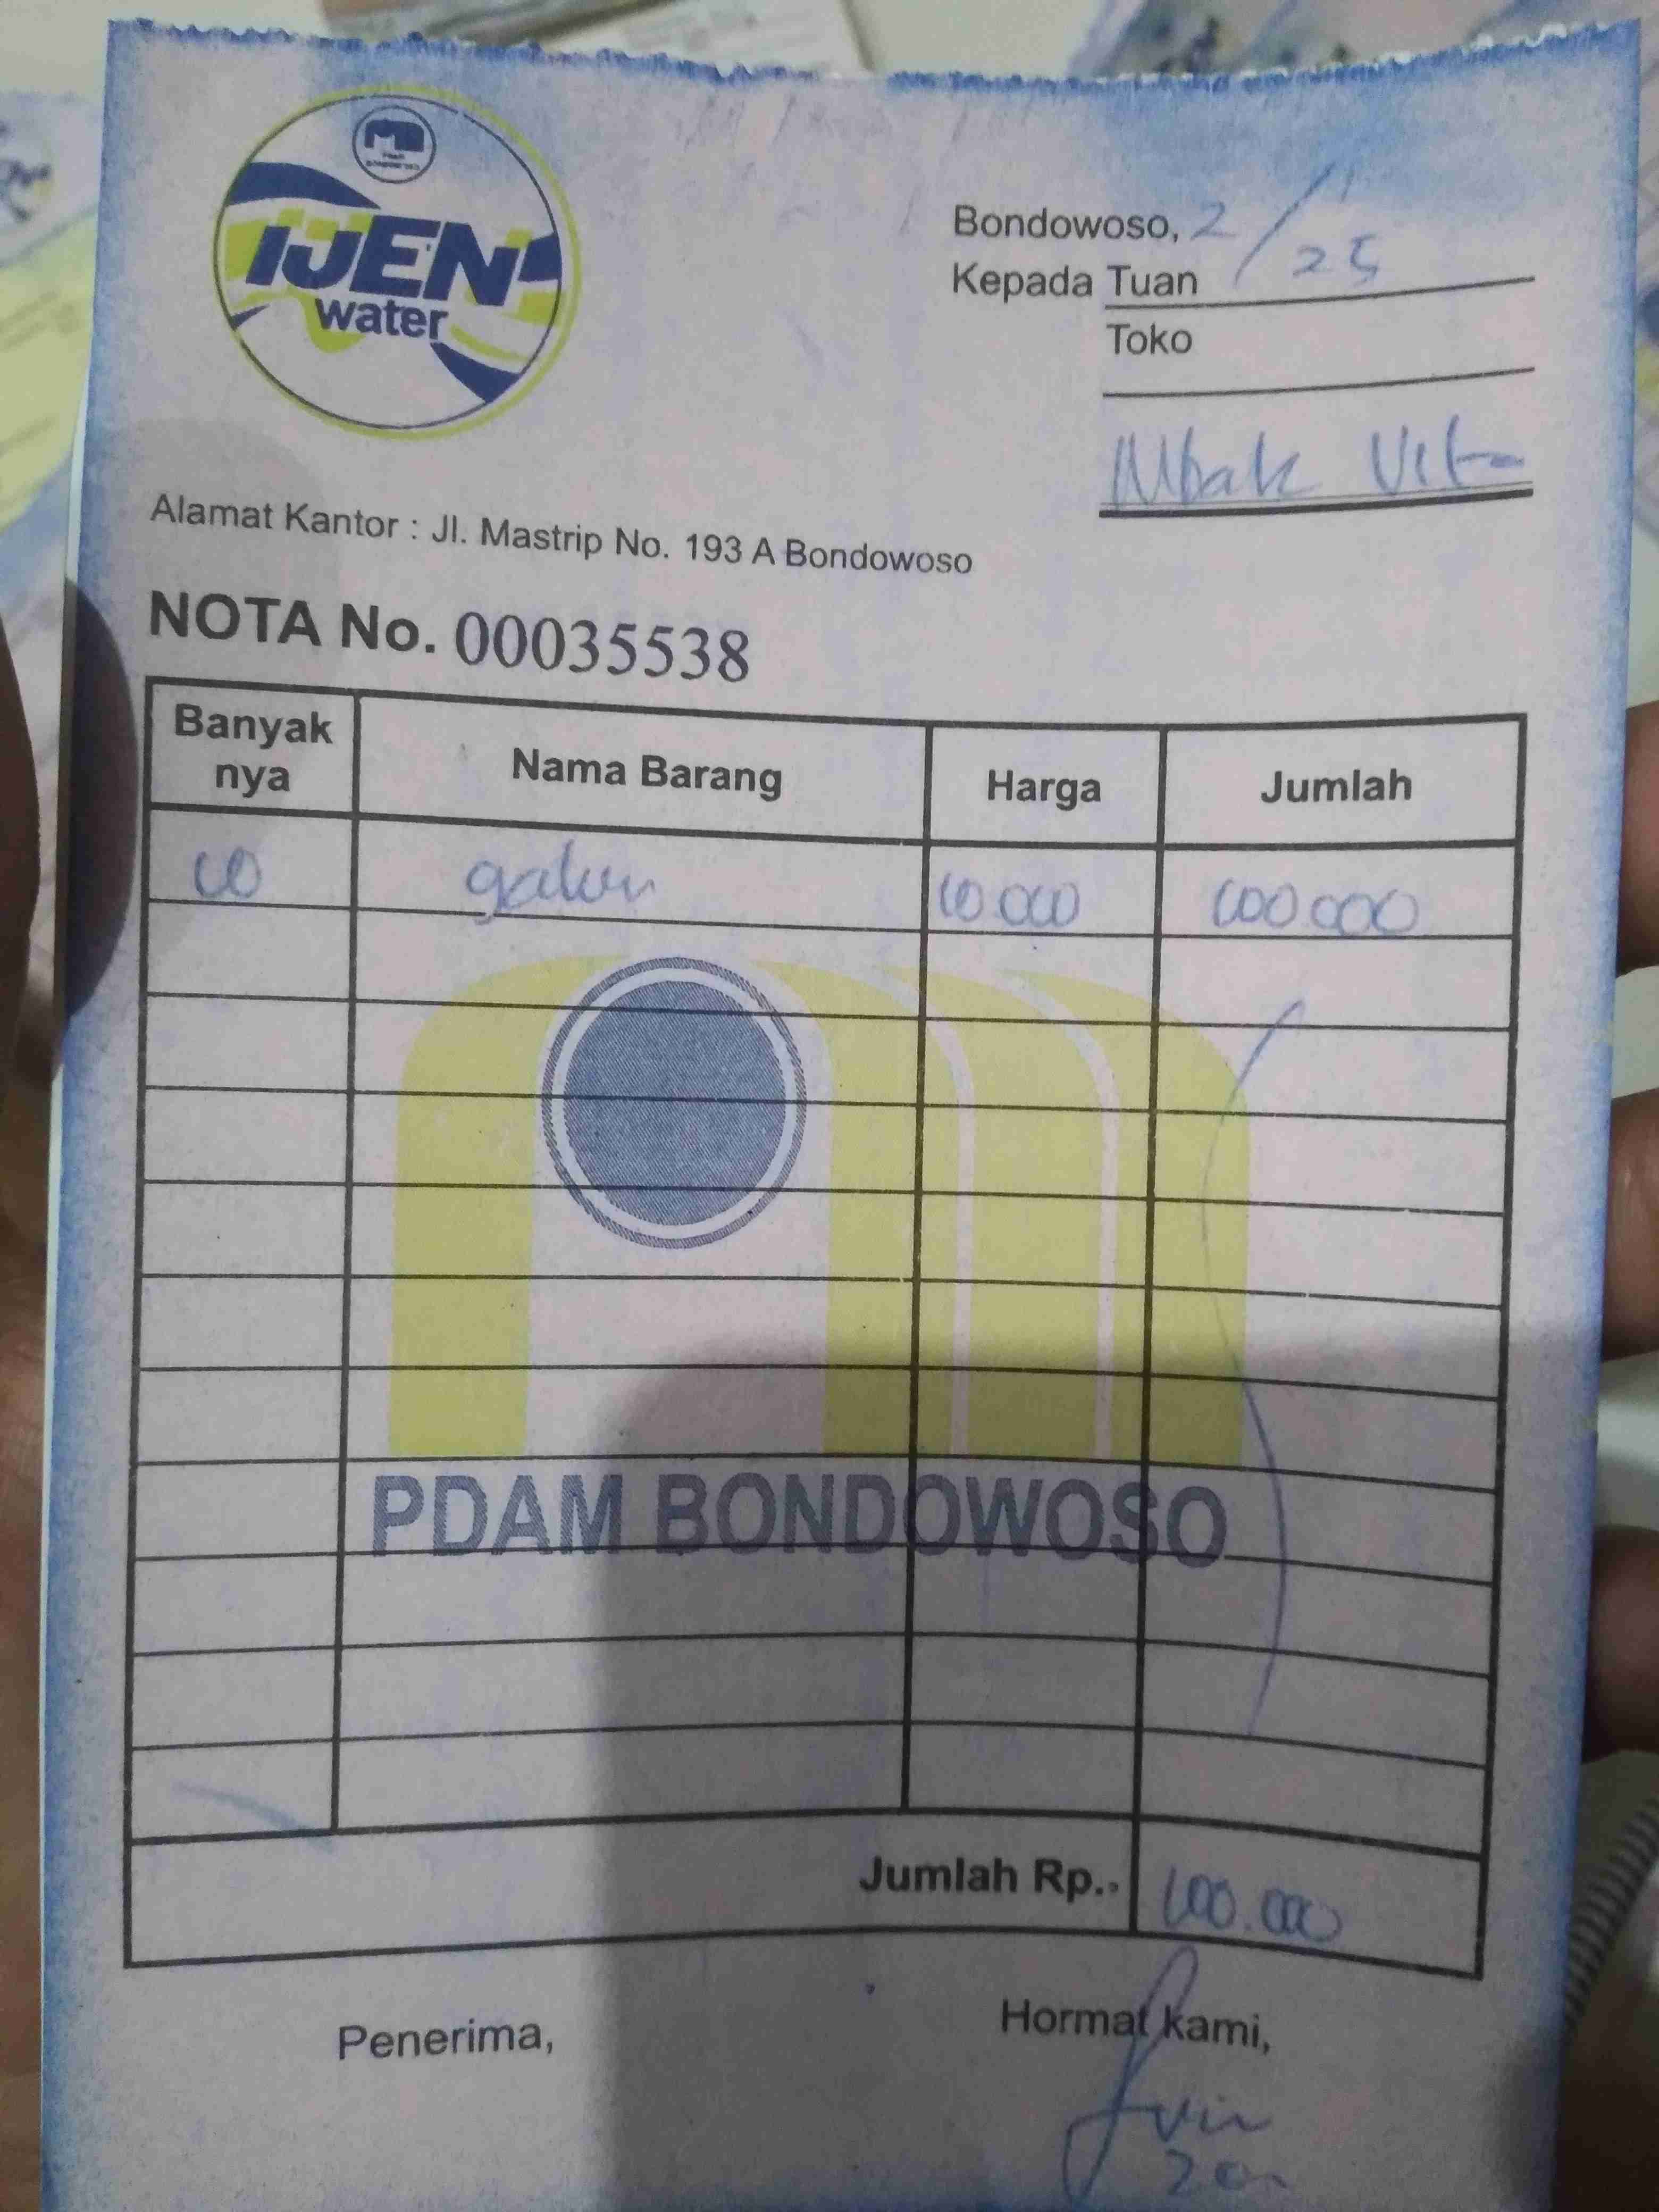 IJEN
water
Bondowoso, 2/25
Kepada Tuan
Toko
Mbak Vita
Alamat Kantor : Jl. Mastrip No. 193 A Bondowoso
NOTA No. 00035538
Banyak nya Nama Barang Harga Jumlah
10 galon 10.000 100.000
PDAM BONDOWOSO
Jumlah Rp. 100.000
Penerima, Hormat kami,